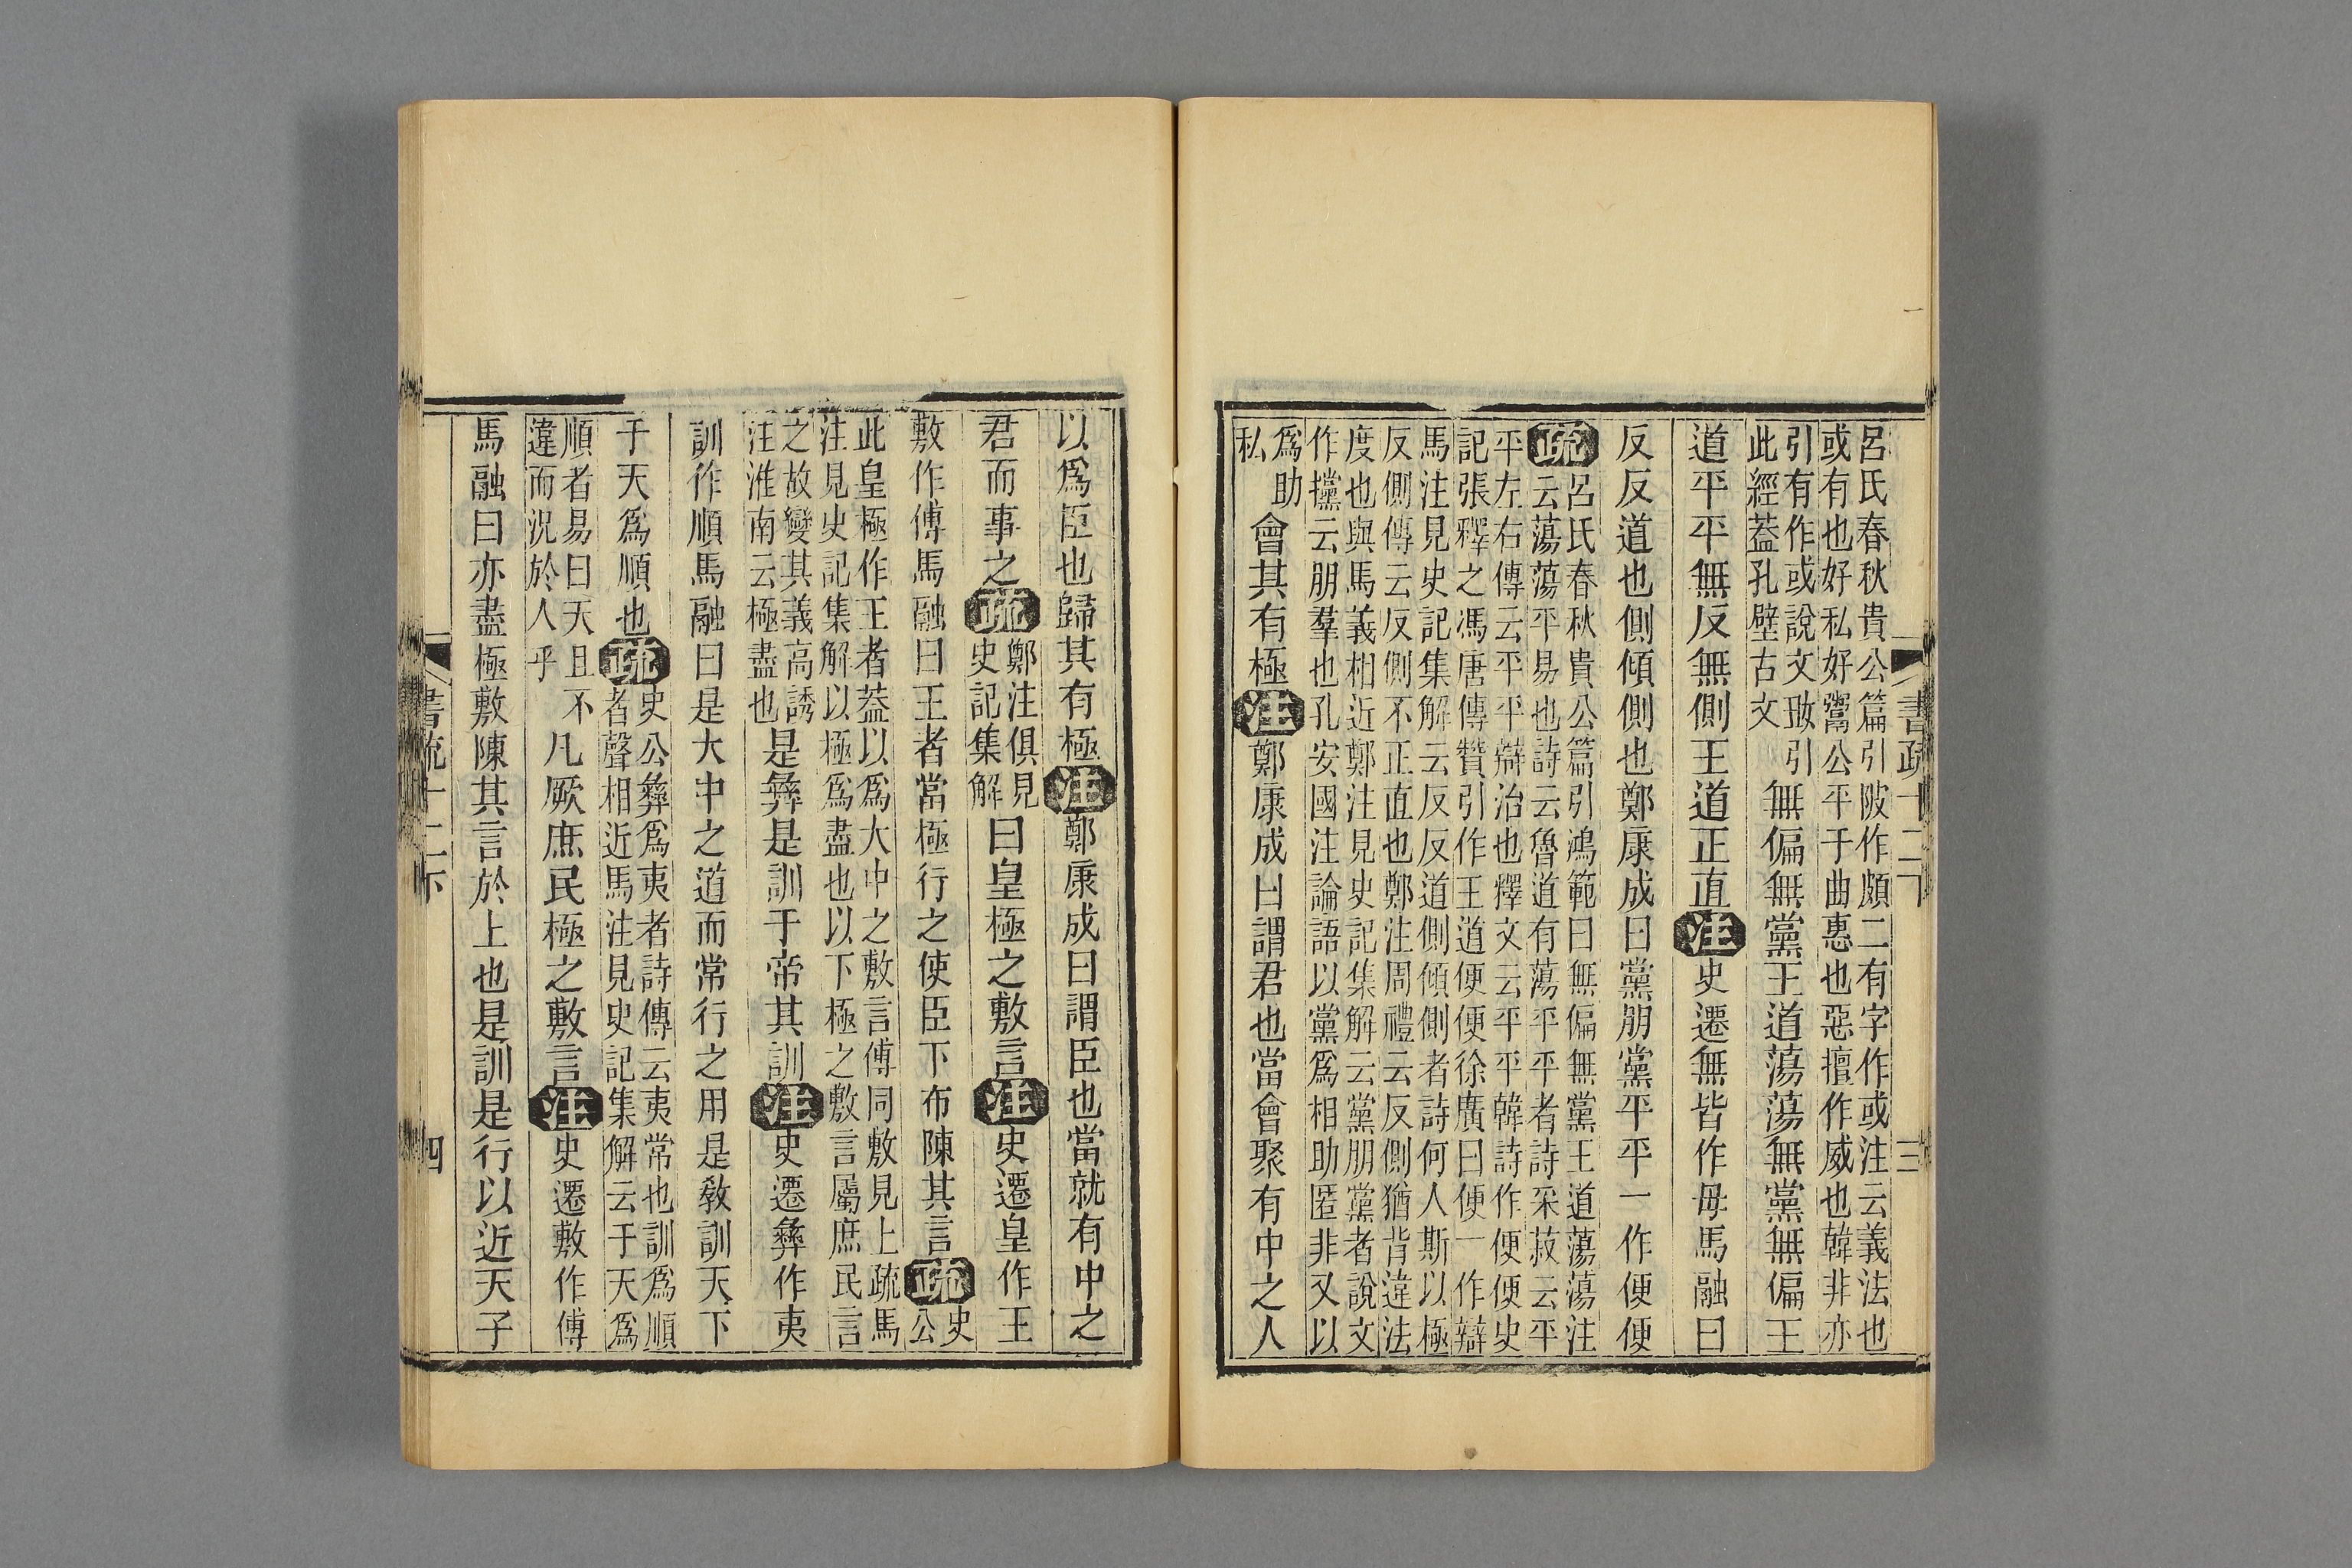 呂氏春秋貴公篇引陂作頗二有字作或注云義法也
或有也好私好鬻公平于曲惠也惡擅作威也韓非亦
引有作或說文𢻱引
此經蓋孔壁古文
無偏無黨王道蕩蕩無黨無偏王
道平平無反無側王道正直注史遷無皆作毋馬融曰
反反道也側傾側也鄭康成曰黨朋黨平平一作便便
疏呂氏春秋貴公篇引鴻範曰無偏無黨王道蕩蕩注
云蕩蕩平易也詩云魯道有蕩平平者詩采菽云平
平左右傳云平平辯治也釋文云平平韓詩作便便史
記張釋之馮唐傳贊引作王道便便徐廣曰便一作辯
馬注見史記集解云反反道側側傾側者詩何人斯以極
反側傳云反側不正直也鄭注周禮云反側猶背違法
度也與馬義相近鄭注見史記集解云黨朋黨者說文
作攩云朋羣也孔安國注論語以黨爲相助匿非又以
爲助
私
會其有極注鄭康成曰謂君也當會聚有中之人
書疏十二下
三
以爲臣也歸其有極注鄭康成曰謂臣也當就有中之
君而事之疏鄭注俱見
史記集解
曰皇極之敷言注史遷皇作王
敷作傅馬融曰王者當極行之使臣下布陳其言疏史
公
此皇極作王者蓋以爲大中之敷言傅同敷見上疏馬
注見史記集解以極爲盡也以下極之敷言屬庶民言
之故變其義高誘
注淮南云極盡也
是彝是訓于帝其訓注史遷彝作夷
訓作順馬融曰是大中之道而常行之用是敎訓天下
于天爲順也疏史公彝爲夷者詩傳云夷常也訓爲順
者聲相近馬注見史記集解云于天爲
順者易曰天且不
違而況於人乎
凡厥庶民極之敷言注史遷敷作傅
馬融曰亦盡極敷陳其言於上也是訓是行以近天子
書疏十二下
四